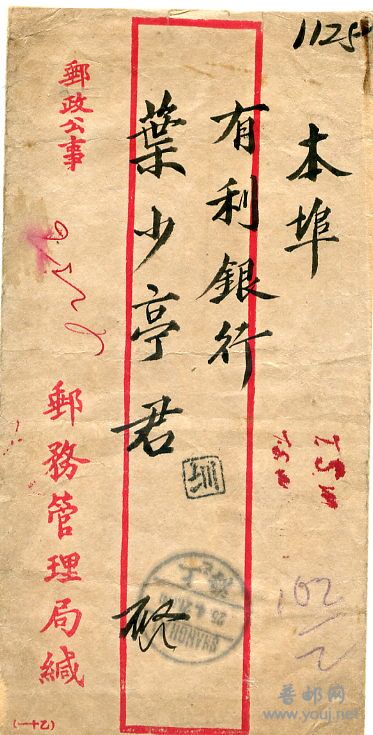 1125
本埠
有利銀行
葉少亭君 啟
郵政公事
郵務管理局緘
(一十乙)
圳
上海
SHANGHAI
102
普邮网
www.youj.net